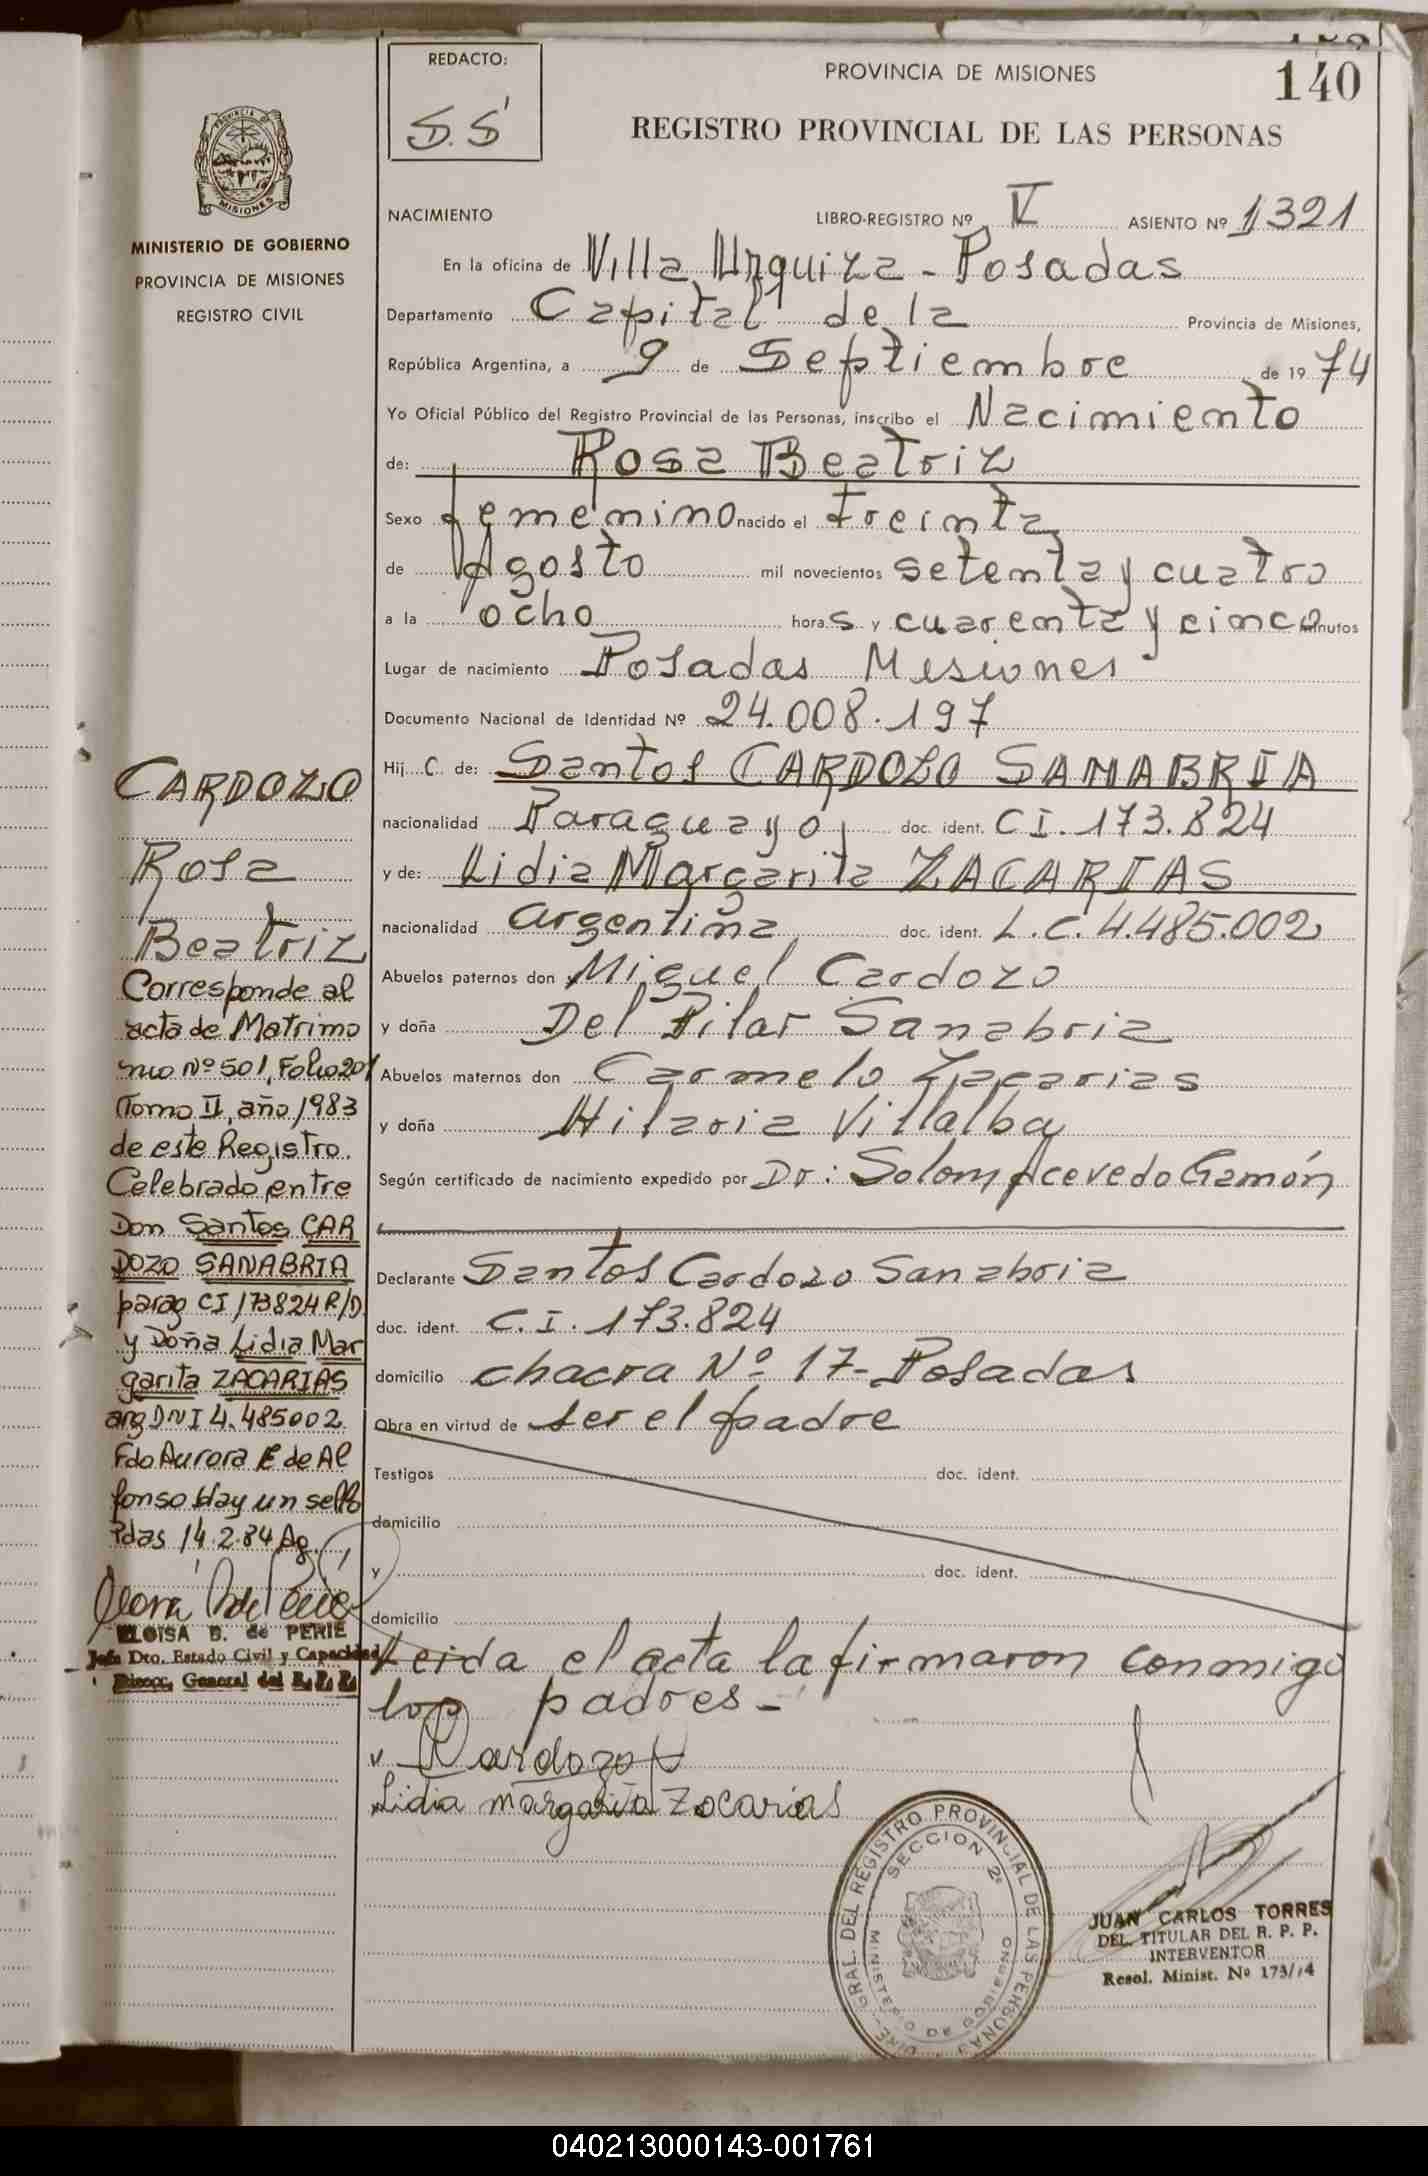 140
REDACTO:
S.S
PROVINCIA DE MISIONES
REGISTRO PROVINCIAL DE LAS PERSONAS
PROVINCIA DE
MISIONES
MINISTERIO DE GOBIERNO
PROVINCIA DE MISIONES
REGISTRO CIVIL
NACIMIENTO LIBRO-REGISTRO Nº V ASIENTO Nº 1321
En la oficina de Villa Urquiza - Posadas
Departamento Capital de la Provincia de Misiones,
República Argentina, a 9 de Septiembre de 1974
Yo Oficial Público del Registro Provincial de las Personas, inscribo el Nacimiento
de: Rosa Beatriz
Sexo femenino nacido el treinta
de Agosto mil novecientos setenta y cuatro
a la ocho horas y cuarenta y cinco minutos
Lugar de nacimiento Posadas Misiones
Documento Nacional de Identidad Nº 24.008.197
Hij C. de: Santos CARDOZO SANABRIA
nacionalidad Paraguayo, doc. ident. CI. 173.824
y de: Lidia Margarita ZACARIAS
nacionalidad argentina, doc. ident. L.C. 4.485.002
Abuelos paternos don Miguel Cardozo
y doña Del Pilar Sanabria
Abuelos maternos don Carmelo Zacarias
y doña Hilaria Villalba
Según certificado de nacimiento expedido por Dr: Solom Acevedo Gamón
Declarante Santos Cardozo Sanabria
doc. ident. C.I. 173.824
domicilio chacra Nº 17- Posadas
Obra en virtud de ser el padre
Testigos doc. ident.
domicilio
y doc. ident.
domicilio
Leida el acta la firmaron conmigo
los padres -
Cardozo
Lidia margarita Zocarias
CARDOZO
Rosa
Beatriz
Corresponde al
acta de Matrimo
nio Nº 501, Folio 201
Tomo II, año 1983
de este Registro.
Celebrado entre
Don Santos CAR
DOZO SANABRIA
parag CI 173824 R/D
y Doña Lidia Mar
garita ZACARIAS
arg DNI 4.485002
Fdo Aurora E de Al
fonso Hay un sello
Pdas 14.2.84 Ag.
ELOISA B. de PERIE
Jefa Dto. Estado Civil y Capacidad
Direcc. General del R.P.P.
DIRE. GRAL. DEL REGISTRO PROVINCIAL DE LAS PERSONAS
SECCION 2ª
MINISTERIO DE GOBIERNO
JUAN CARLOS TORRES
DEL. TITULAR DEL R. P. P.
INTERVENTOR
Resol. Minist. Nº 173/74
040213000143-001761